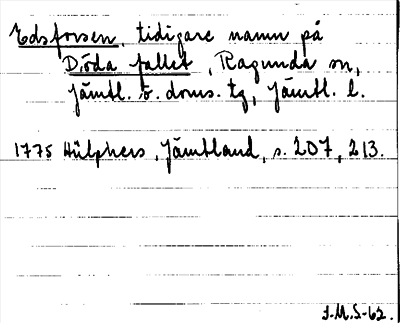 Edsforsen, tidigare namn på
Döda fallet, Ragunda sn,
Jämtl. ö. doms. tg, Jämtl. l.
1775 Hülphers, Jämtland, s. 207, 213.
J.M.S-62.